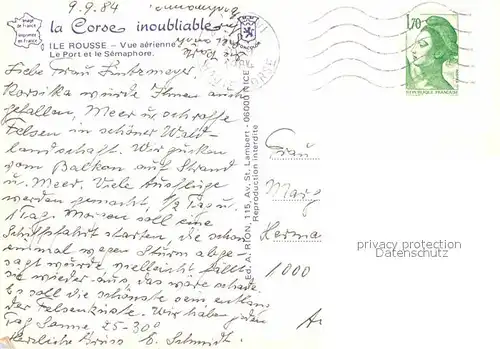 9.9.84
image de France
imprimée en France
la Corse inoubliable
ILE ROUSSE – Vue aérienne
Le Port et le Sémaphore.
1,70
REPUBLIQUE FRANÇAISE
CORSE
Liebe Frau
Korsika würde Ihnen auch
gefallen, Meer u. schroffe
Felsen in schöner Wald-
landschaft. Wir gucken
vom Balkon auf Strand
u. Meer. Viele Ausflüge
werden gemacht, 1/2 Tag u.
1 Tag. Morgen soll eine
Schiffsfahrt starten, die schon
einmal wegen Sturm abge-
sagt wurde, vielleicht fällt
sie wieder aus, das wäre schade.
Es soll die schönste sein entlang
der Felsenküste. Wir haben jeden
Tag Sonne, 25-30°
Herzliche Grüße E. Schmidt.
Ed. A. RION, 115, Av. St. Lambert - 06000 NICE
Reproduction interdite
Frau
Marg
Herma
1000
privacy protection
Datenschutz